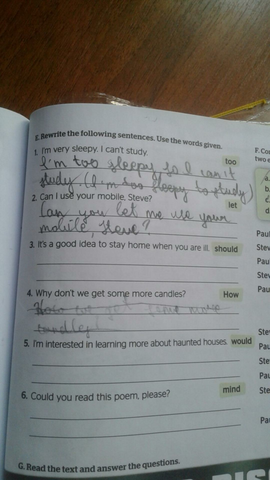 E. Rewrite the following sentences. Use the words given.
1. I'm very sleepy. I can't study. too
I'm too sleepy so I can't
study. (I'm too sleepy to study)
2. Can I use your mobile, Steve? let
Can you let me use your
mobile, Steve?
3. It's a good idea to stay home when you are ill. should
4. Why don't we get some more candles? How
get some more
5. I'm interested in learning more about haunted houses. would
6. Could you read this poem, please? mind
G. Read the text and answer the questions.
F. Co
two
a
b
c
d
Paul
Stev
Pau
Stev
Pau
Ste
Pau
Ste
Pau
Ste
Pau